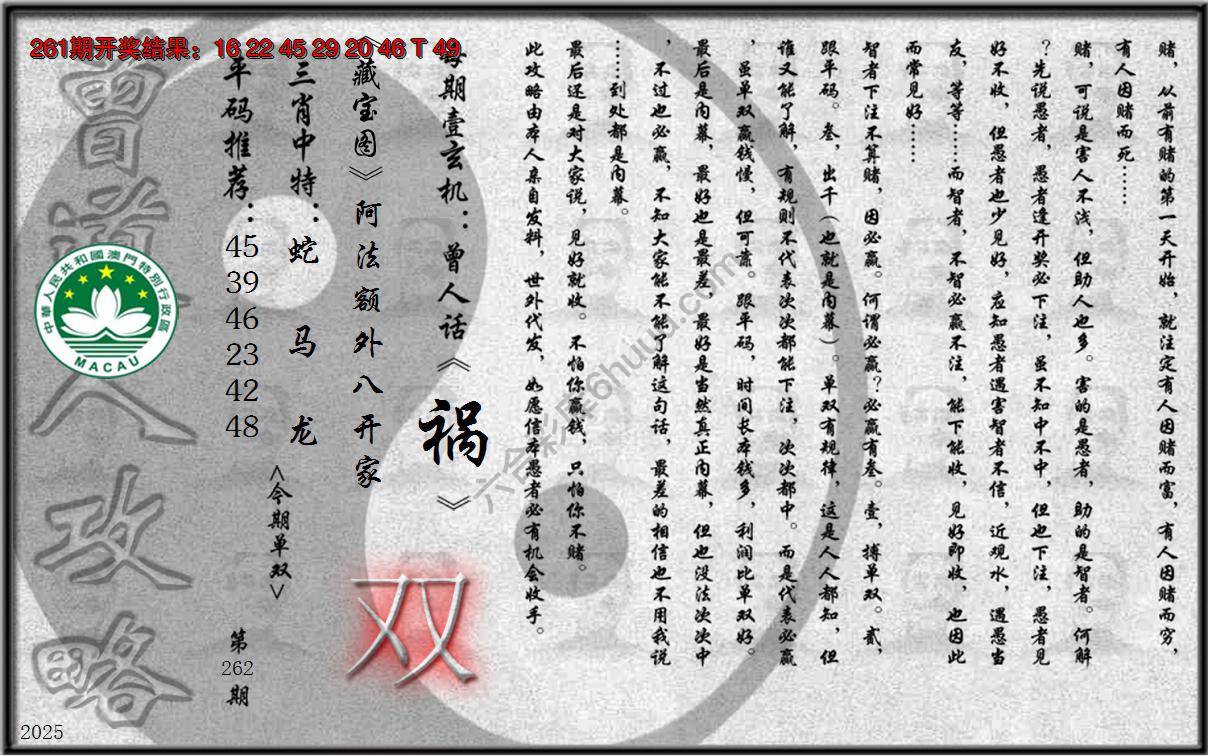 261期开奖结果：16 22 45 29 20 46 T 49
赌，从前有赌的第一天开始，就注定有人因赌而富，有人因赌而穷，
有人因赌而死……
赌，可说是害人不浅，但助人也多。害的是愚者，助的是智者。何解
？先说愚者，愚者逢开奖必下注，虽不知中不中，但也下注，愚者见
好不收，但愚者也少见好，应知愚者遇害智者不信，近观水，遇愚当
友，等等……而智者，不智必赢不注，能下能收，见好即收，也因此
而常见好……
智者下注不算赌，因必赢。何谓必赢？必赢有叁。壹，搏单双。贰，
跟平码。叁，出千（也就是内幕）。单双有规律，这是人人都知，但
谁又能了解，有规则不代表次次都能下注，次次都中。而是代表必赢
，虽单双赢钱慢，但可靠。跟平码，时间长本钱多，利润比单双好。
最后是内幕，最好也是最差，最好是当然真正内幕，但也没法次次中
，不过也必赢，不知大家能不能了解这句话，最差的相信也不用我说
……到处都是内幕。
最后还是对大家说，见好就收。不怕你赢钱，只怕你不赌。
此攻略由本人亲自发料，世外代发，如愿信本愚者必有机会收手。
每期壹玄机：曾人话《祸》
《藏宝图》阿法额外八开家
双
三肖中特：蛇 马 龙
<今期单双>
平码推荐：
45
39
46
23
42
48
第
262
期
曾道人攻略
中華人民共和國澳門特別行政區
MACAU
六合彩库6huuu.com
2025